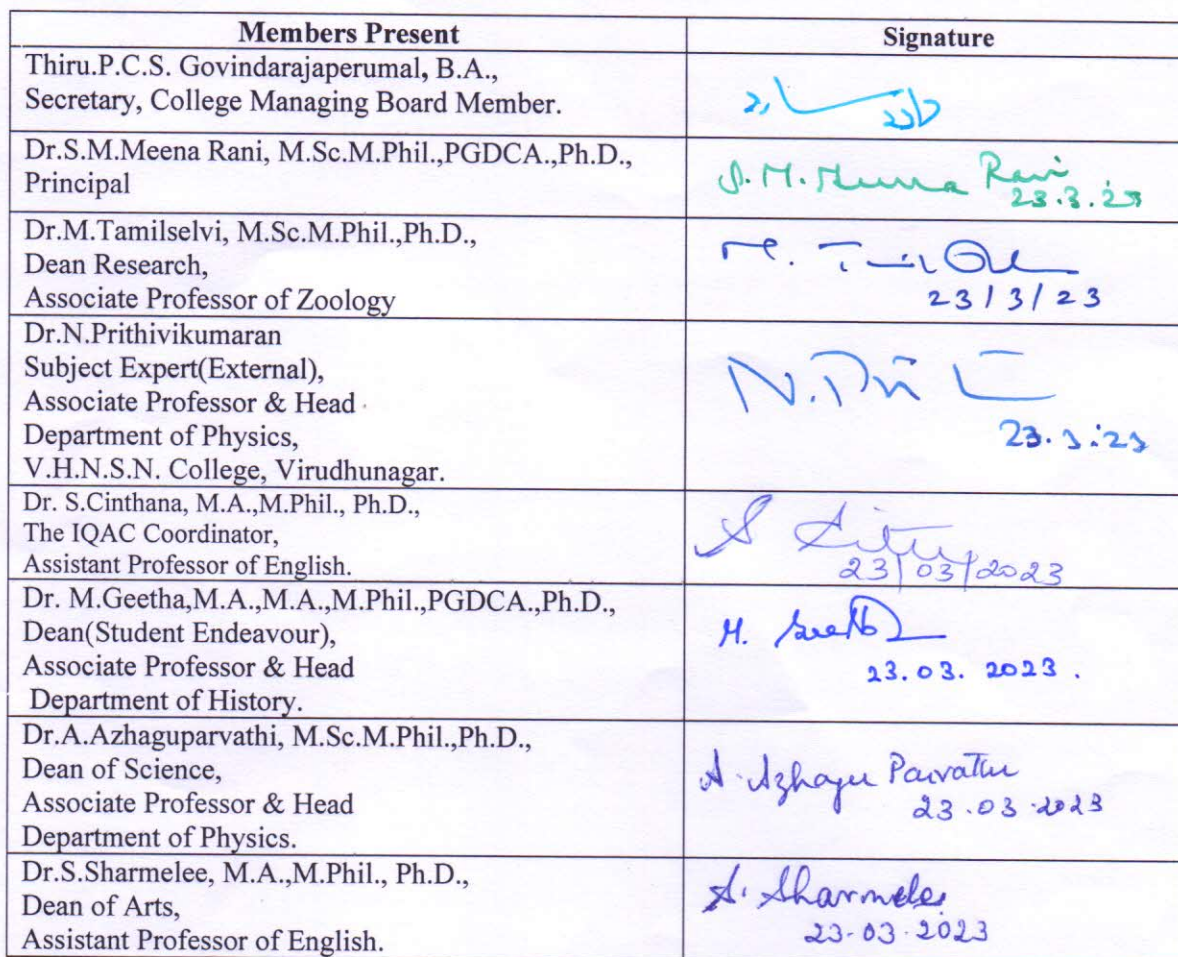 Members Present
Signature
Thiru.P.C.S. Govindarajaperumal, B.A.,
Secretary, College Managing Board Member.
Dr.S.M.Meena Rani, M.Sc.M.Phil.,PGDCA.,Ph.D.,
Principal
S.M.Meena Rani
23.3.23
Dr.M.Tamilselvi, M.Sc.M.Phil.,Ph.D.,
Dean Research,
Associate Professor of Zoology
23/3/23
Dr.N.Prithivikumaran
Subject Expert(External),
Associate Professor & Head
Department of Physics,
V.H.N.S.N. College, Virudhunagar.
N.Pri
23.3.23
Dr. S.Cinthana, M.A.,M.Phil., Ph.D.,
The IQAC Coordinator,
Assistant Professor of English.
23/03/2023
Dr. M.Geetha,M.A.,M.A.,M.Phil.,PGDCA.,Ph.D.,
Dean(Student Endeavour),
Associate Professor & Head
Department of History.
M. Geetha
23.03.2023.
Dr.A.Azhaguparvathi, M.Sc.M.Phil.,Ph.D.,
Dean of Science,
Associate Professor & Head
Department of Physics.
A. Azhagu Parvathi
23.03.2023
Dr.S.Sharmelee, M.A.,M.Phil., Ph.D.,
Dean of Arts,
Assistant Professor of English.
S. Sharmelee
23.03.2023